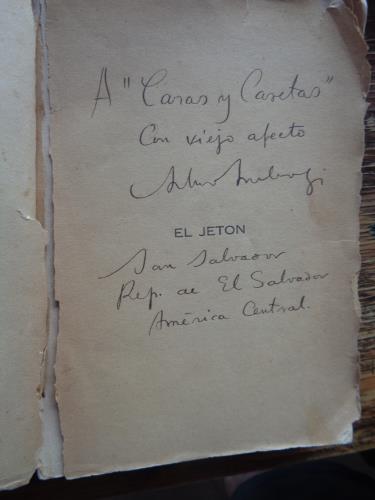 A "Caras y Caretas"
Con viejo afecto
Arturo Ambrogi
EL JETON
San Salvador
Rep. de El Salvador
América Central.